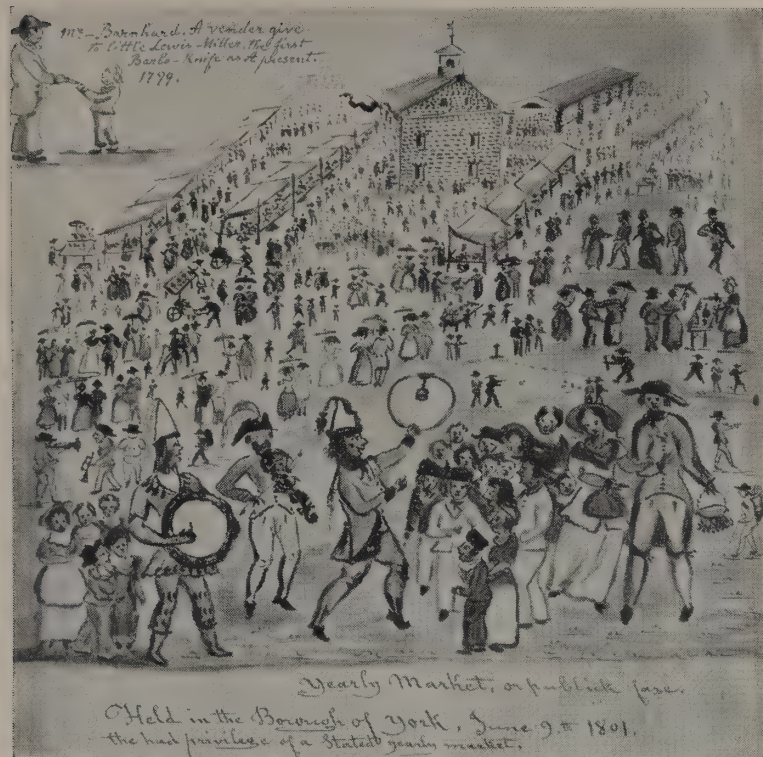 Mr – Barnhard. A vender give
to little Lewis Miller, the first
Barlo – Knife as A present.
1799.
Yearly Market, or publick fare.
Held in the Borough of York, June 9th 1801.
the had privilege of a Stated yearly market.